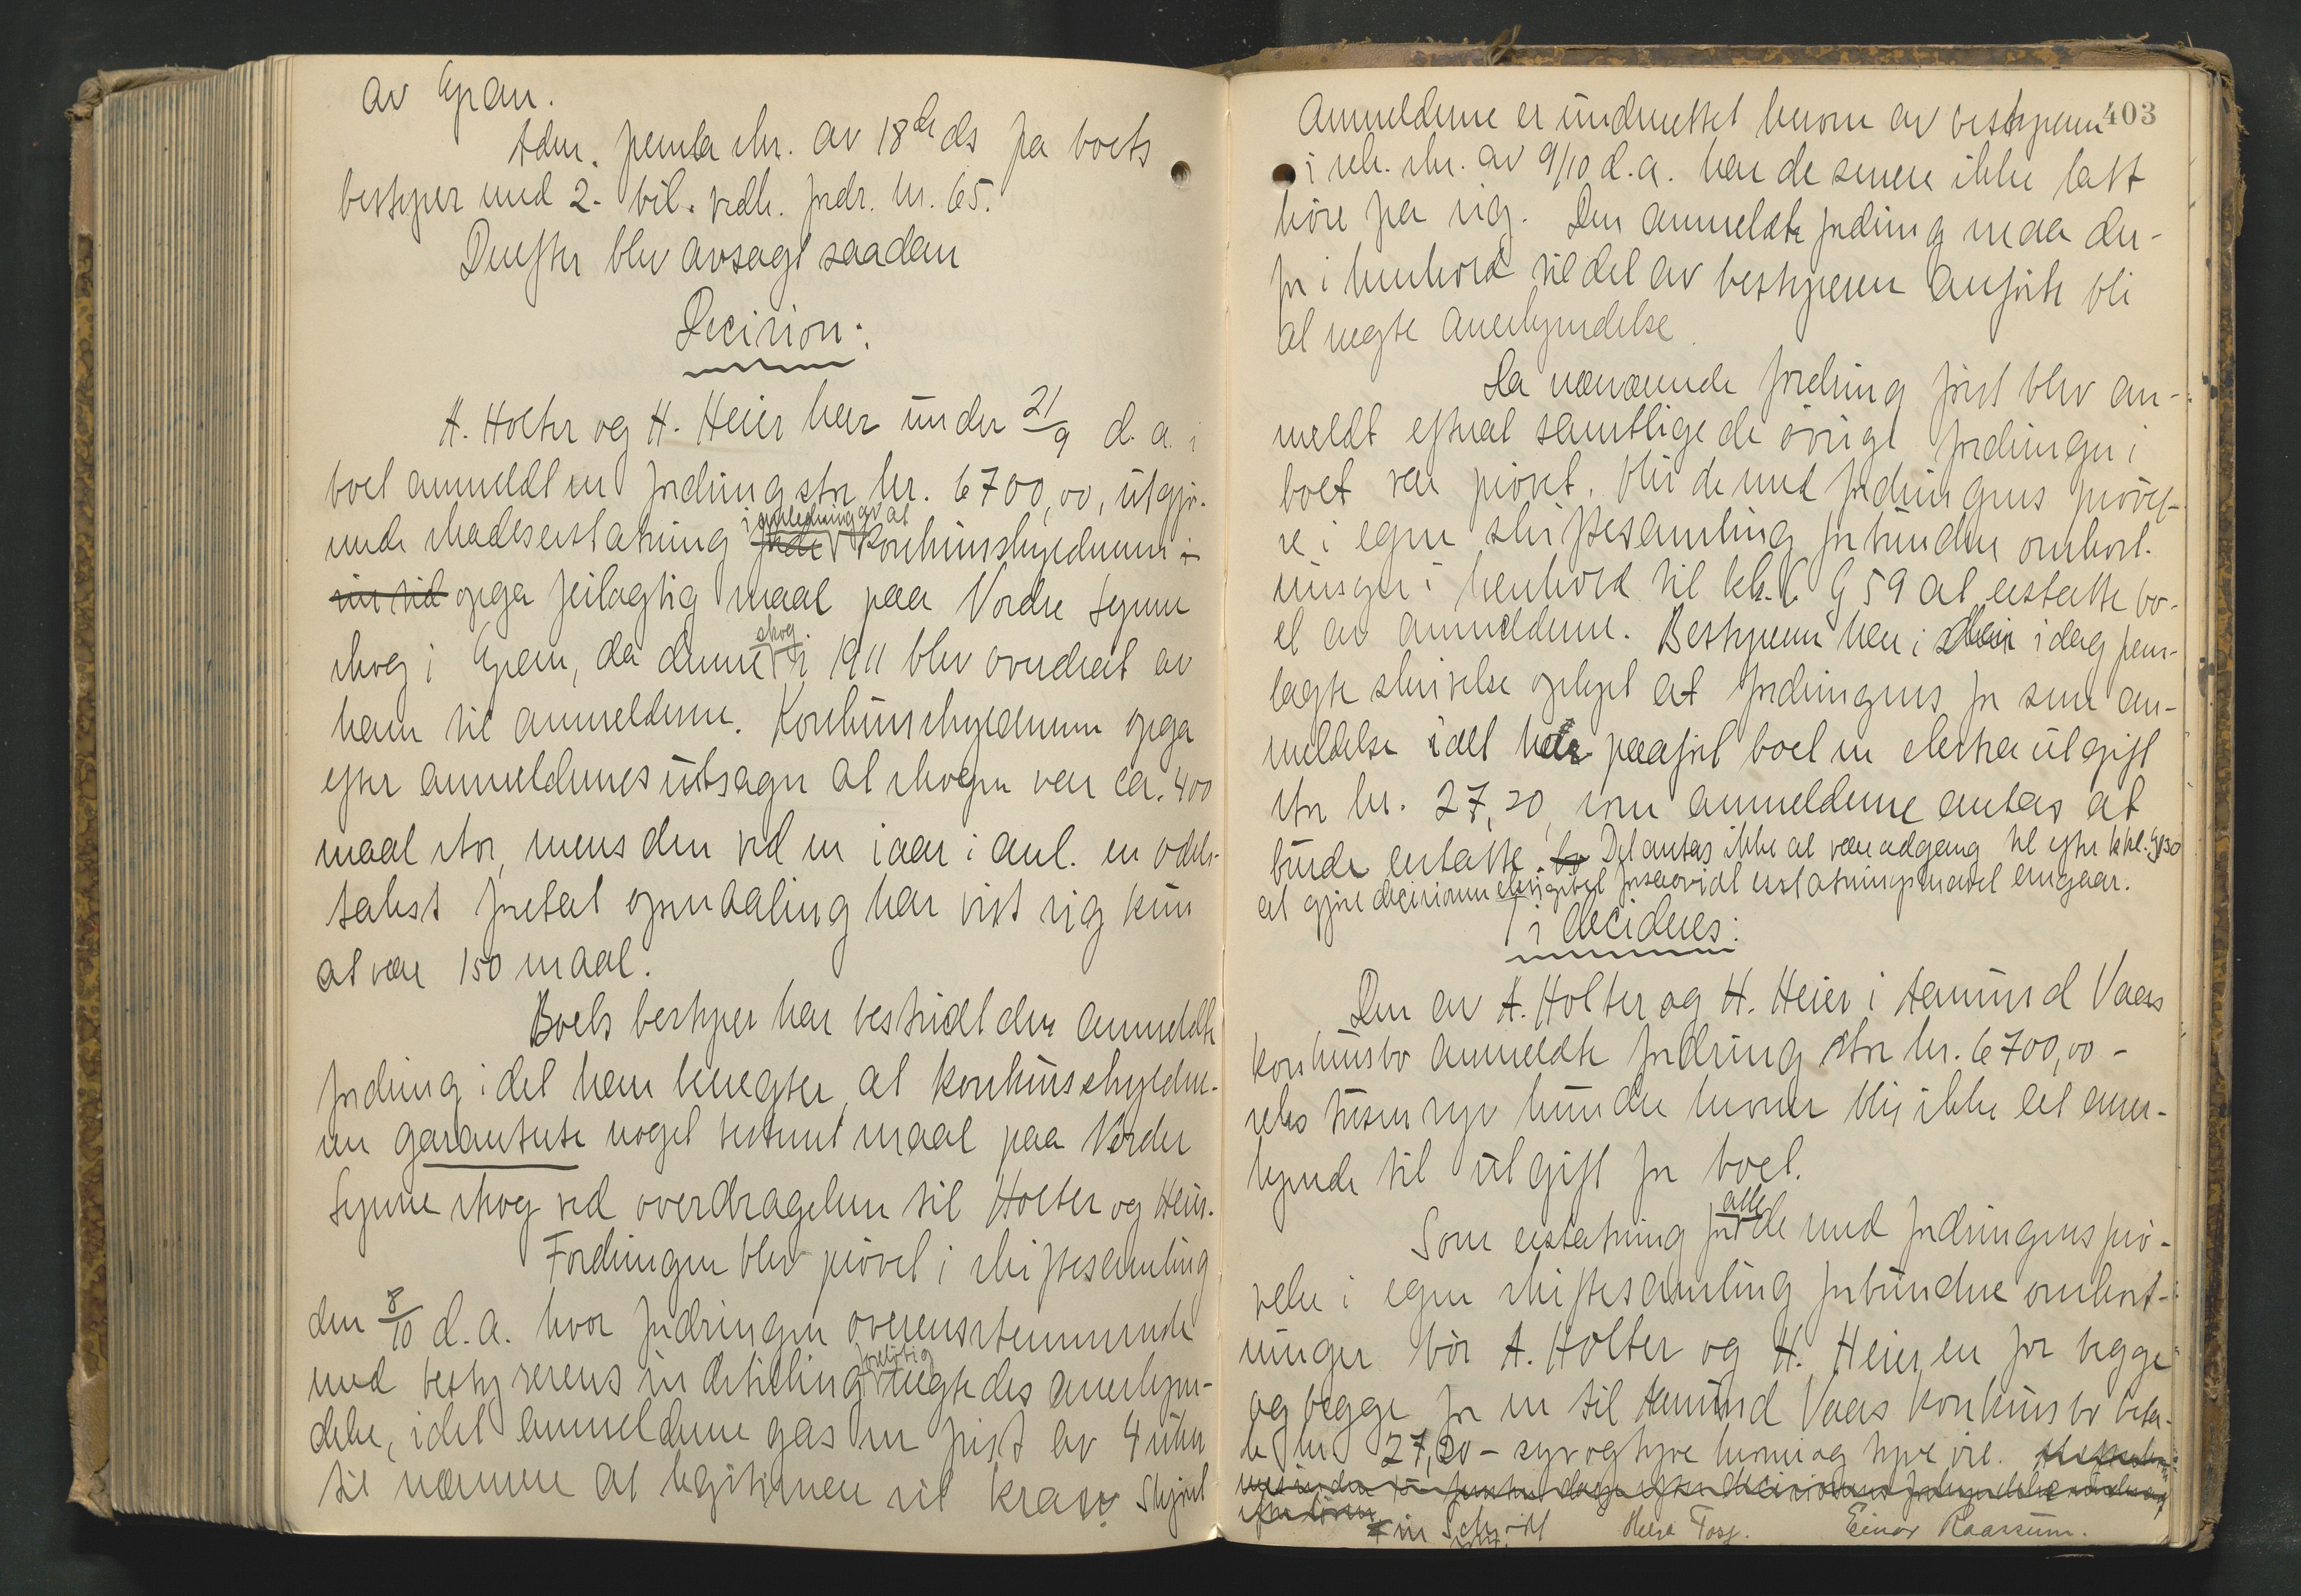 av Gran.
Adm. femla skr. av 18de ds fra boets
bestyrer med 2 bil. vedk. fordr. nr. 65.
Derefter blev avsagt saadan
Decision:
A. Holter og H. Heier har under 21/9 d.a. i
boet anmeldt en fordring stor kr. 6700,00, utgjø-
rende skadeserstatning i anledning av at konkursskyldneren
opga feilagtig maal paa Nordre Lynne
skog i Gran, da denne skog i 1911 blev overdrat av
ham til anmelderne. Konkursskyldneren opga
efter anmeldernes utsagn at skogen var ca. 400
maal stor, mens den ved en iaar i anl. en odels-
takst foretat opmaaling har vist sig kun
at være 150 maal.
Boets bestyrer har bestridt den anmeldte
fordring idet han benegter, at konkursskyldne-
ren garanterte noget bestemt maal paa Nordre
Lynne skog ved overdragelsen til Holter og Heier.
Fordringen blev prøvet i skiftesamling
den 8/10 d.a. hvor fordringen overensstemmende
med bestyrerens indstilling foreløbig negtedes anerkjen-
delse, idet anmelderne gas en frist av 4 uker
til nærmere at legitimere sit krav. Skjønt
403
Anmelderne er underrettet herom av bestyreren
i rek. skr. av 9/10 d.a. har de senere ikke latt
høre fra sig. Den anmeldte fordring maa der-
for i henhold til det av bestyreren anførte bli
at negte anerkjendelse.
Da nærværende fordring først blev an-
meldt efterat samtlige de øvrige fordringer i
boet var prøvet, blir de med fordringens prøvel-
se i egen skiftesamling forbundne omkost-
ninger i henhold til kkl. § 59 at erstatte bo-
et av anmelderne. Bestyreren har i idag frem-
lagte skrivelse oplyst at fordringens for sene an-
meldelse idet hele paaført boet en ekstra utgift
stor kr. 27,20, som anmelderne antas at
burde erstatte. Det antas ikke at være adgang til efter kkl. § 130
at gjøre decisionen eksigibel forsaavidt erstatningsansvaret angaar.
Ti decideres:
Den av A. Holter og H. Heier i Aamund Vaas
konkursbo anmeldte fordring stor kr. 6700,00 -
seks tusen syv hundre kroner blir ikke at aner-
kjende til utgift for boet.
Som erstatning for alle de med fordringens prø-
velse i egen skiftesamling forbundne omkost-
ninger bør A. Holter og H. Heier en for begge
og begge for en til Aamund Vaas konkursbo beta-
le kr. 27,20 - syv og tyve kroner og tyve øre.
Helge Foss. Einar Kaarsum.